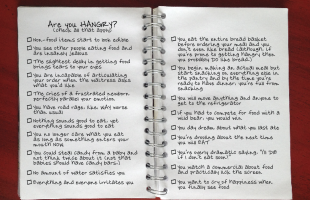 Are you HANGRY?
(check all that apply)
Non-food items start to look edible
You see other people eating food and
are insanely jealous
The slightest delay in getting food
brings tears to your eyes
You are incapable of articulating
your order when the waitress asks
what you'd like
The cries of a frustrated newborn
perfectly parallel your emotion
You have road rage, like way worse
than usual
Nothing sounds good to eat, yet
everything sounds good to eat
You no longer care what you eat
as long as something enters your
mouth NOW
You could steal candy from a baby and
not think twice about it (not that
babies should have candy bars.)
No amount of water satisfies you
Everything and everyone irritates you
You eat the entire bread basket
before ordering your meal (and you
don't even like bread (although if
you're prone to getting hangry, then
you probably DO like bread.)
You begin making an actual meal but
start snacking on everything else in
the pantry and by the time you're
ready to have dinner, you're full from
snacking
You will move anything and anyone to
get to the refrigerator
If you had to compete for food with a
wild bear, you would win
You day dream about what you last ate
You're drooling about the next time
you will EAT
You're overly dramatic saying, "I'll DIE
if I don't eat soon!"
You watch a commercial about food
and practically lick the screen
You want to cry of happiness when
you finally see food